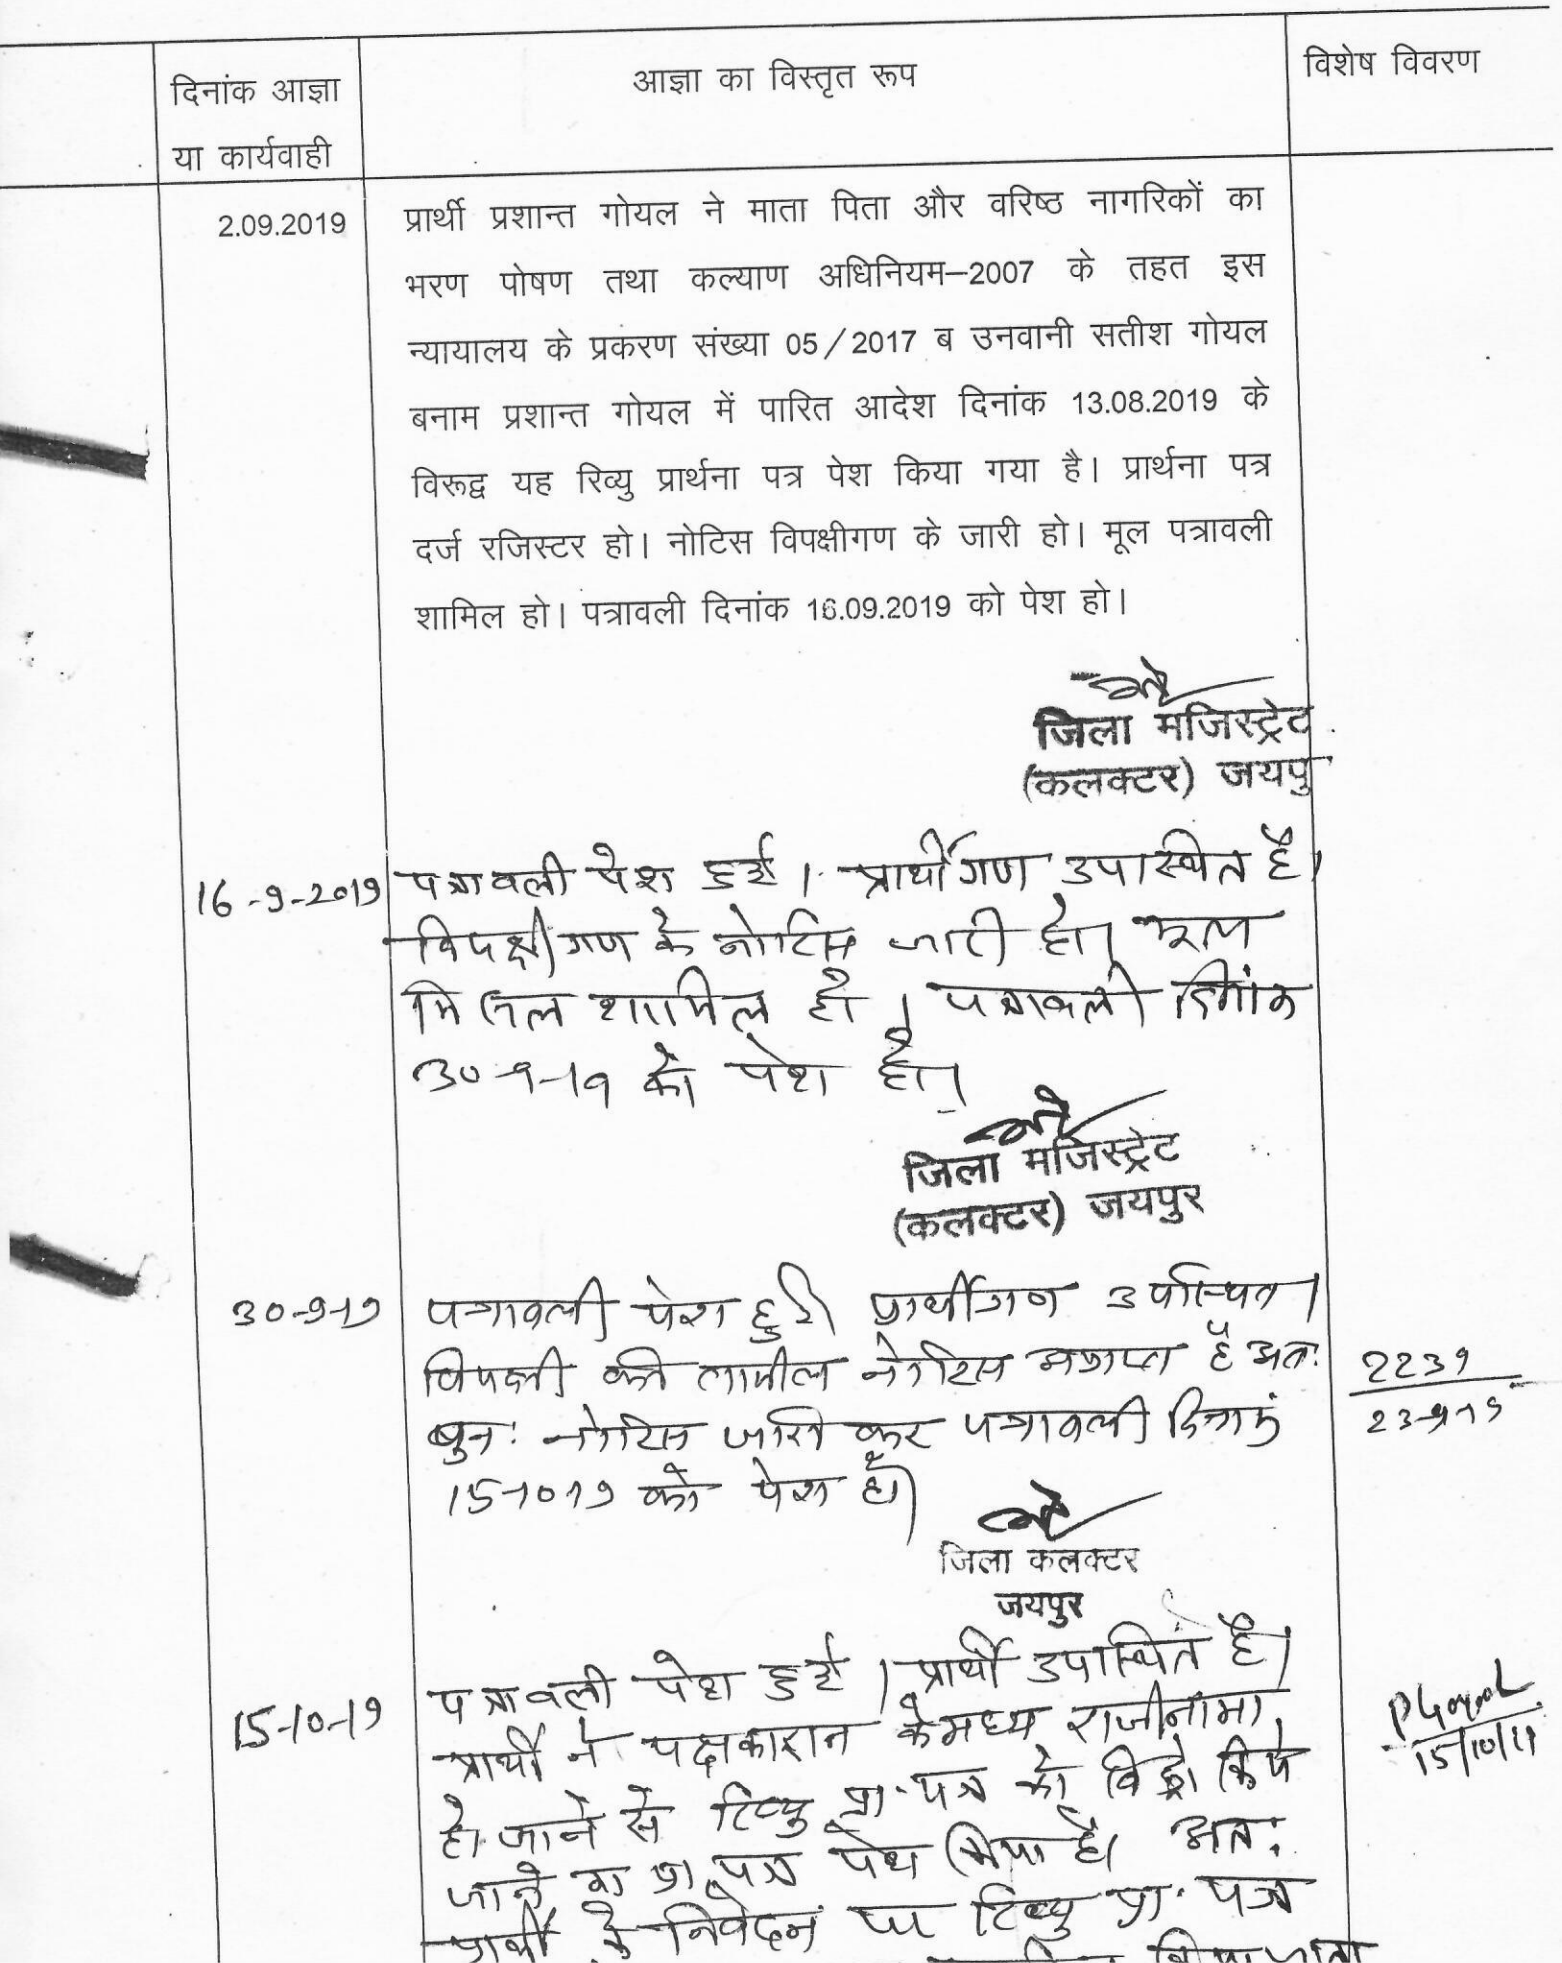 दिनांक आज्ञा
या कार्यवाही
आज्ञा का विस्तृत रूप
विशेष विवरण
2.09.2019
प्रार्थी प्रशान्त गोयल ने माता पिता और वरिष्ठ नागरिकों का
भरण पोषण तथा कल्याण अधिनियम–2007 के तहत इस
न्यायालय के प्रकरण संख्या 05/2017 ब उनवानी सतीश गोयल
बनाम प्रशान्त गोयल में पारित आदेश दिनांक 13.08.2019 के
विरूद्व यह रिव्यु प्रार्थना पत्र पेश किया गया है। प्रार्थना पत्र
दर्ज रजिस्टर हो। नोटिस विपक्षीगण के जारी हो। मूल पत्रावली
शामिल हो। पत्रावली दिनांक 16.09.2019 को पेश हो।
जिला मजिस्ट्रेट
(कलक्टर) जयपु
16-9-2019
पत्रावली पेश हुई । प्रार्थीगण उपस्थित है।
विपक्षीगण के नोटिस जारी हो। मूल
मिसल शामिल हो । पत्रावली दिनांक
30-9-19 को पेश हो।
जिला मजिस्ट्रेट
(कलक्टर) जयपुर
30-9-19
पत्रावली पेश हुई प्रार्थीगण उपस्थित।
विपक्षी की तामील नोटिस अप्राप्त है अतः
पुनः नोटिस जारी कर पत्रावली दिनांक
15-10-19 को पेश हो।
2239
23-9-19
जिला कलक्टर
जयपुर
15-10-19
पत्रावली पेश हुई । प्रार्थी उपस्थित है।
प्रार्थी ने पक्षकारान के मध्य राजीनामा
हो जाने से रिव्यु प्रा. पत्र को विड्रो किये
जाने का प्रा. पत्र पेश किया है। अतः
प्रार्थी के निवेदन पर रिव्यु प्रा. पत्र
किया जाता
PGoyal
15/10/19